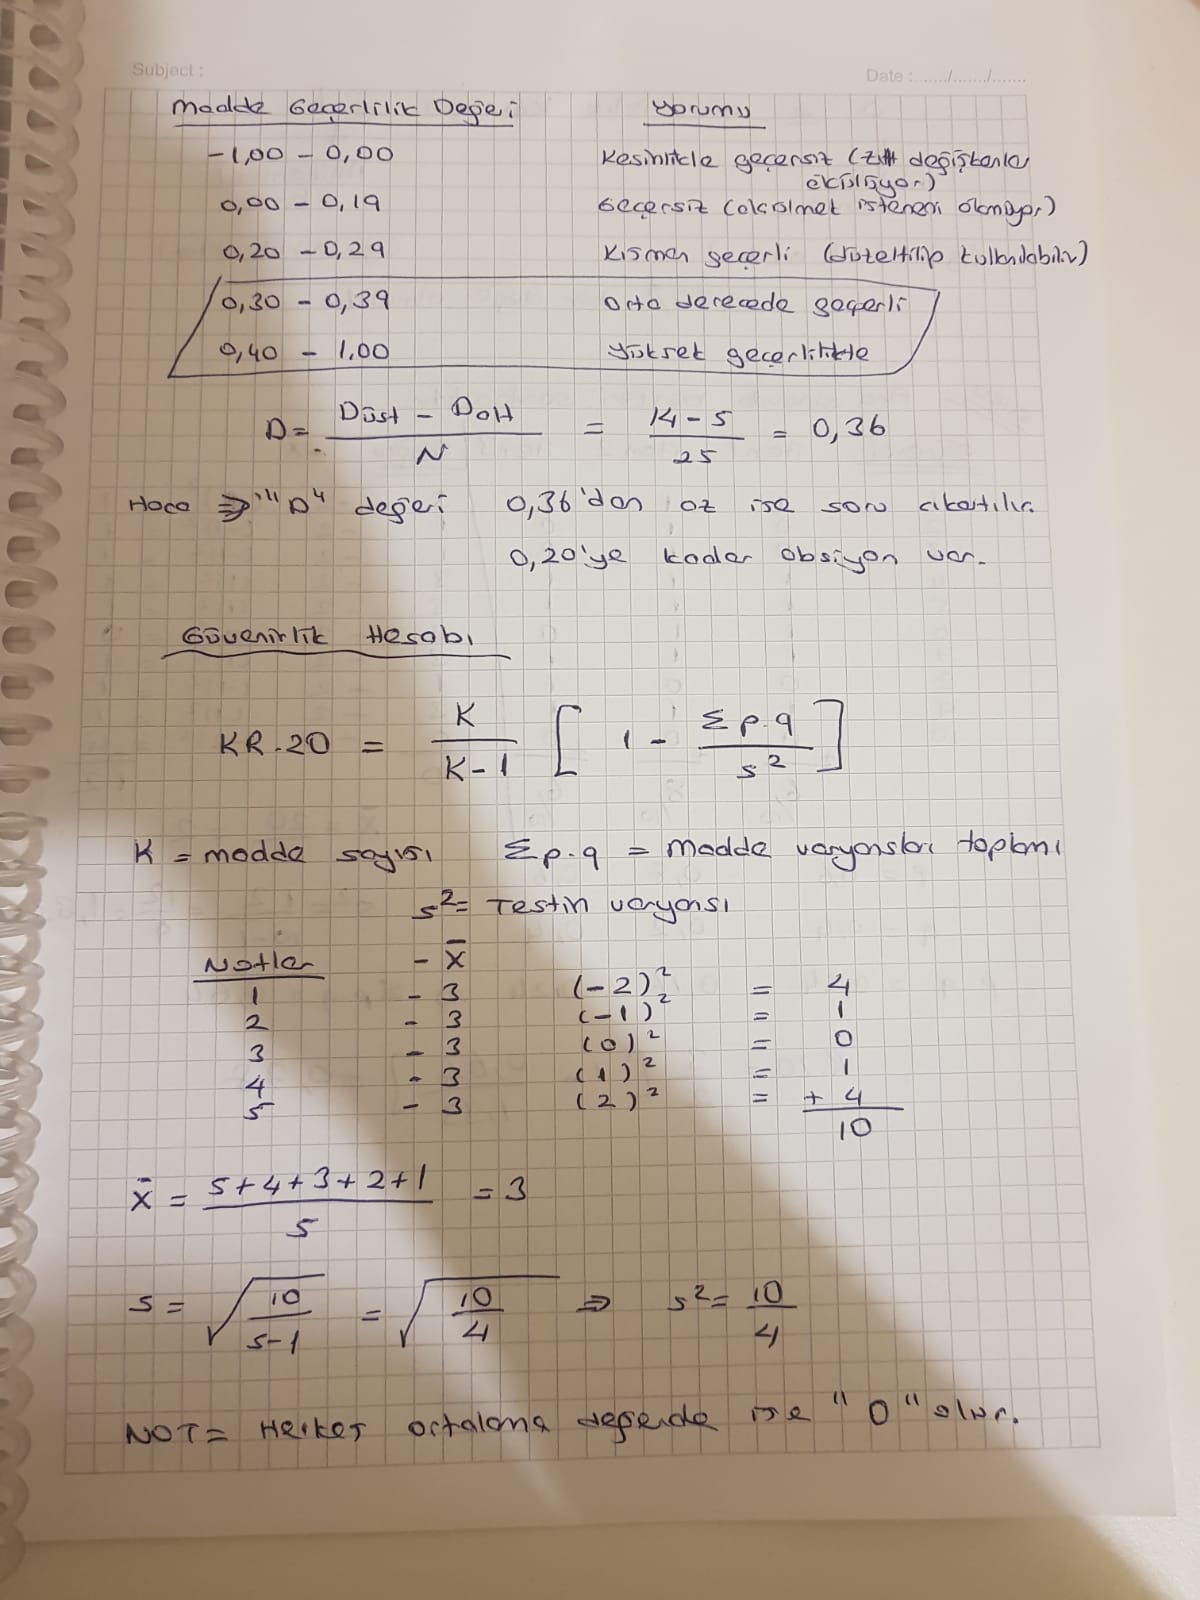 Subject :
Date :....../......./.......
Madde Geçerlilik Değeri
Yorumu
-1,00 - 0,00 Kesinlikle geçersiz (zıt değişkenle
ölçülüyor)
0,00 - 0,19 Geçersiz (ölçülmek istenen olmayır)
0,20 - 0,29 Kısmen geçerli (düzeltilip kullanılabilir)
0,30 - 0,39 Orta derecede geçerli
0,40 - 1.00 Yüksek geçerlilikte
D = Düst - Dalt / N = 14 - 5 / 25 = 0,36
Hoca => "D" değeri 0,36'dan az ise soru çıkartılır.
0,20'ye kadar obsiyon var.
Güvenirlik Hesabı
KR-20 = K / K-1 [ 1 - Σp.q / s² ]
K = madde sayısı Σp.q = Madde varyansları toplamı
s² = Testin varyansı
Notler - X̄
1 - 3 (-2)² = 4
2 - 3 (-1)² = 1
3 - 3 (0)² = 0
4 - 3 (1)² = 1
5 - 3 (2)² = + 4
10
X̄ = 5+4+3+2+1 / 5 = 3
s = √10 / 5-1 = √10 / 4 => s² = 10 / 4
NOT = Herkes ortalama değerde ise "0" olur.